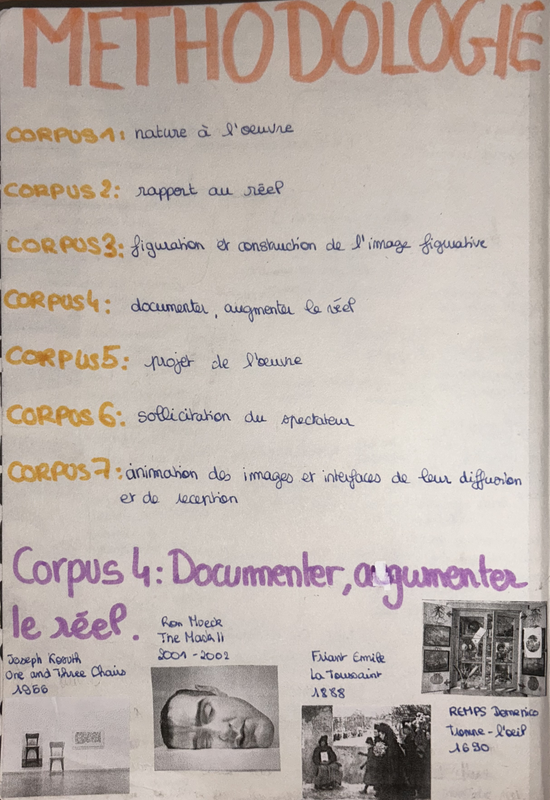 METHODOLOGIE
CORPUS 1: nature à l'oeuvre
CORPUS 2: rapport au réel
CORPUS 3: figuration et construction de l'image figurative
CORPUS 4: documenter, augmenter le réel
CORPUS 5: projet de l'oeuvre
CORPUS 6: sollicitation du spectateur
CORPUS 7: animation des images et interfaces de leur diffusion
et de reception
Corpus 4: Documenter, augmenter
le réel.
Ron Mueck
The Mask II
2001-2002
Joseph Kosuth
One and Three Chairs
1966
Friant Emile
La Toussaint
1888
REMPS Domenico
Tromne-l'oeil
1690